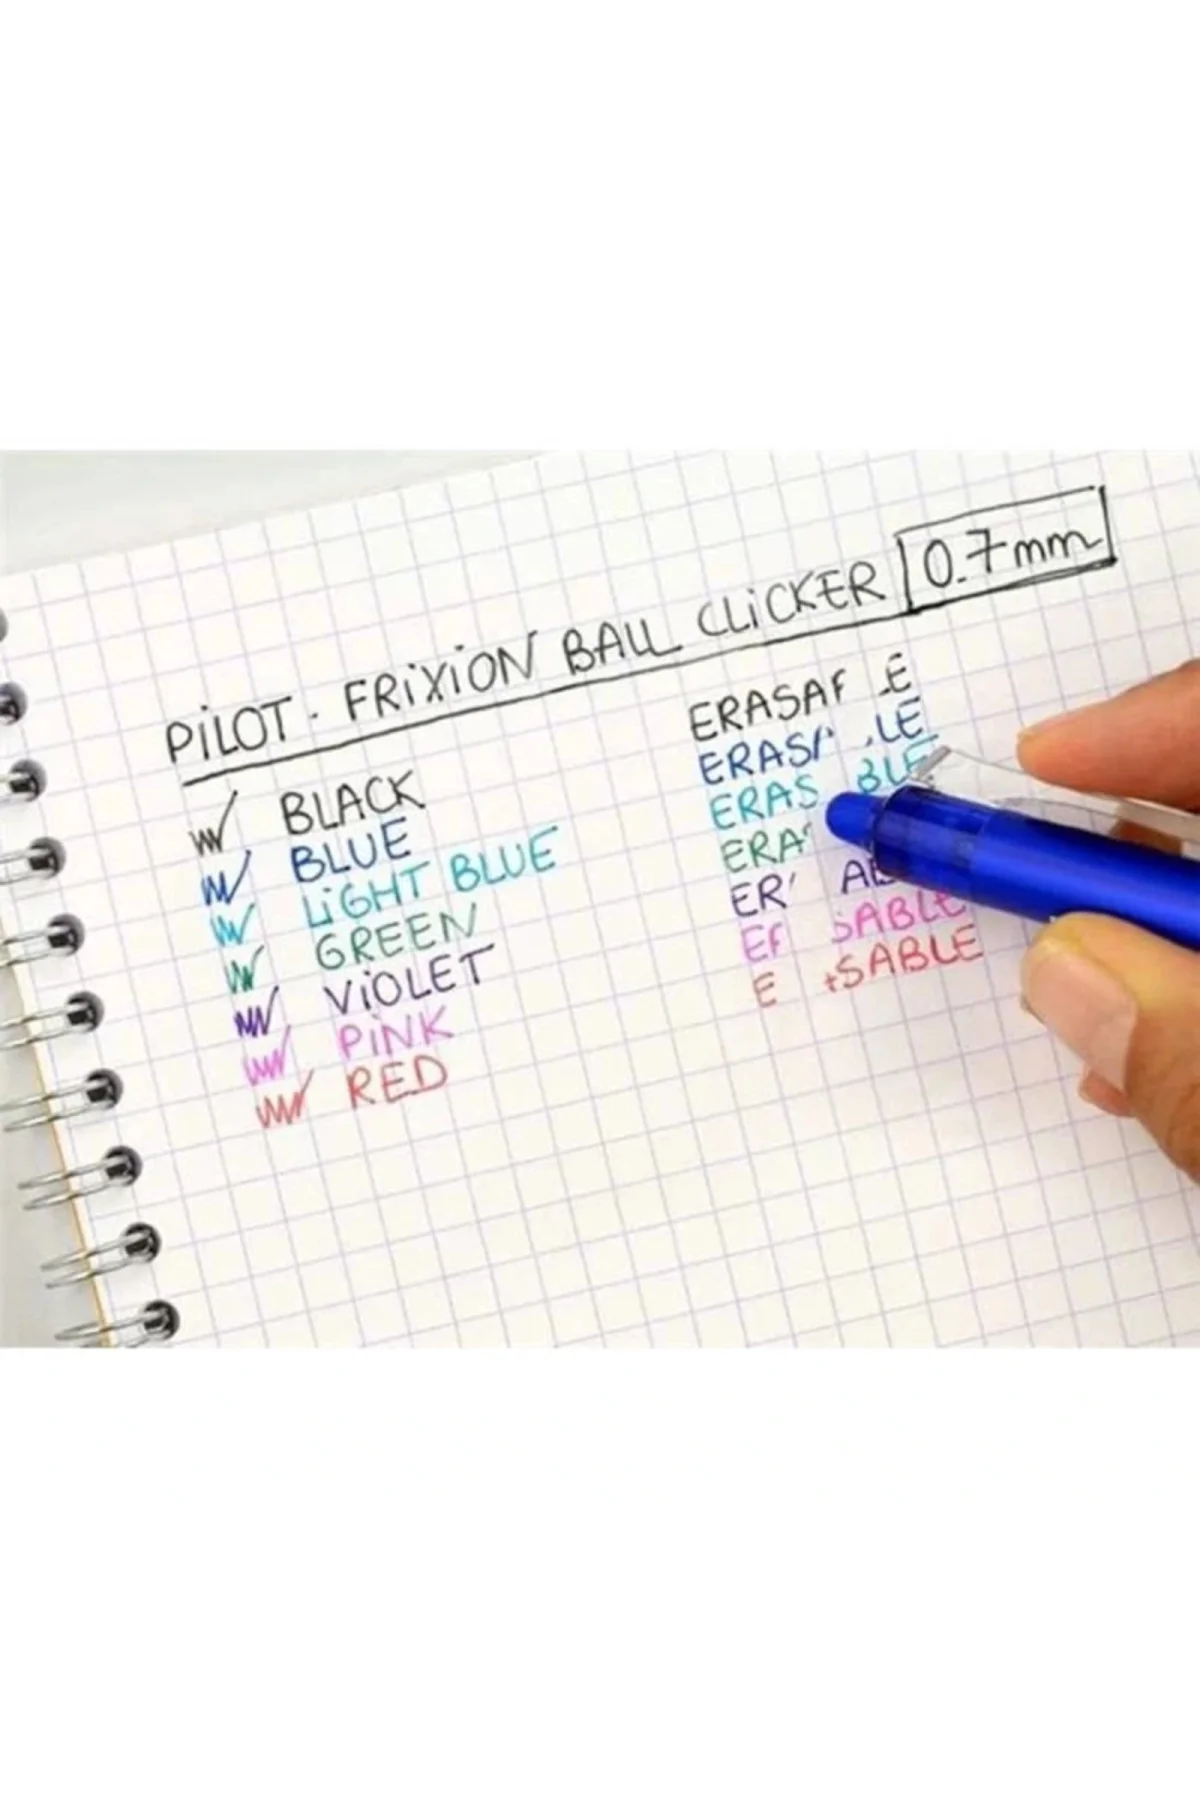 PiLOT. FRiXiON BALL CLiCKER 0.7mm
BLACK
BLUE
LiGHT BLUE
GREEN
ViOLET
PiNK
RED
ERASAF E
ERAS LE
ERAS BLE
ERA
ER AB
EF SABLE
E SABLE